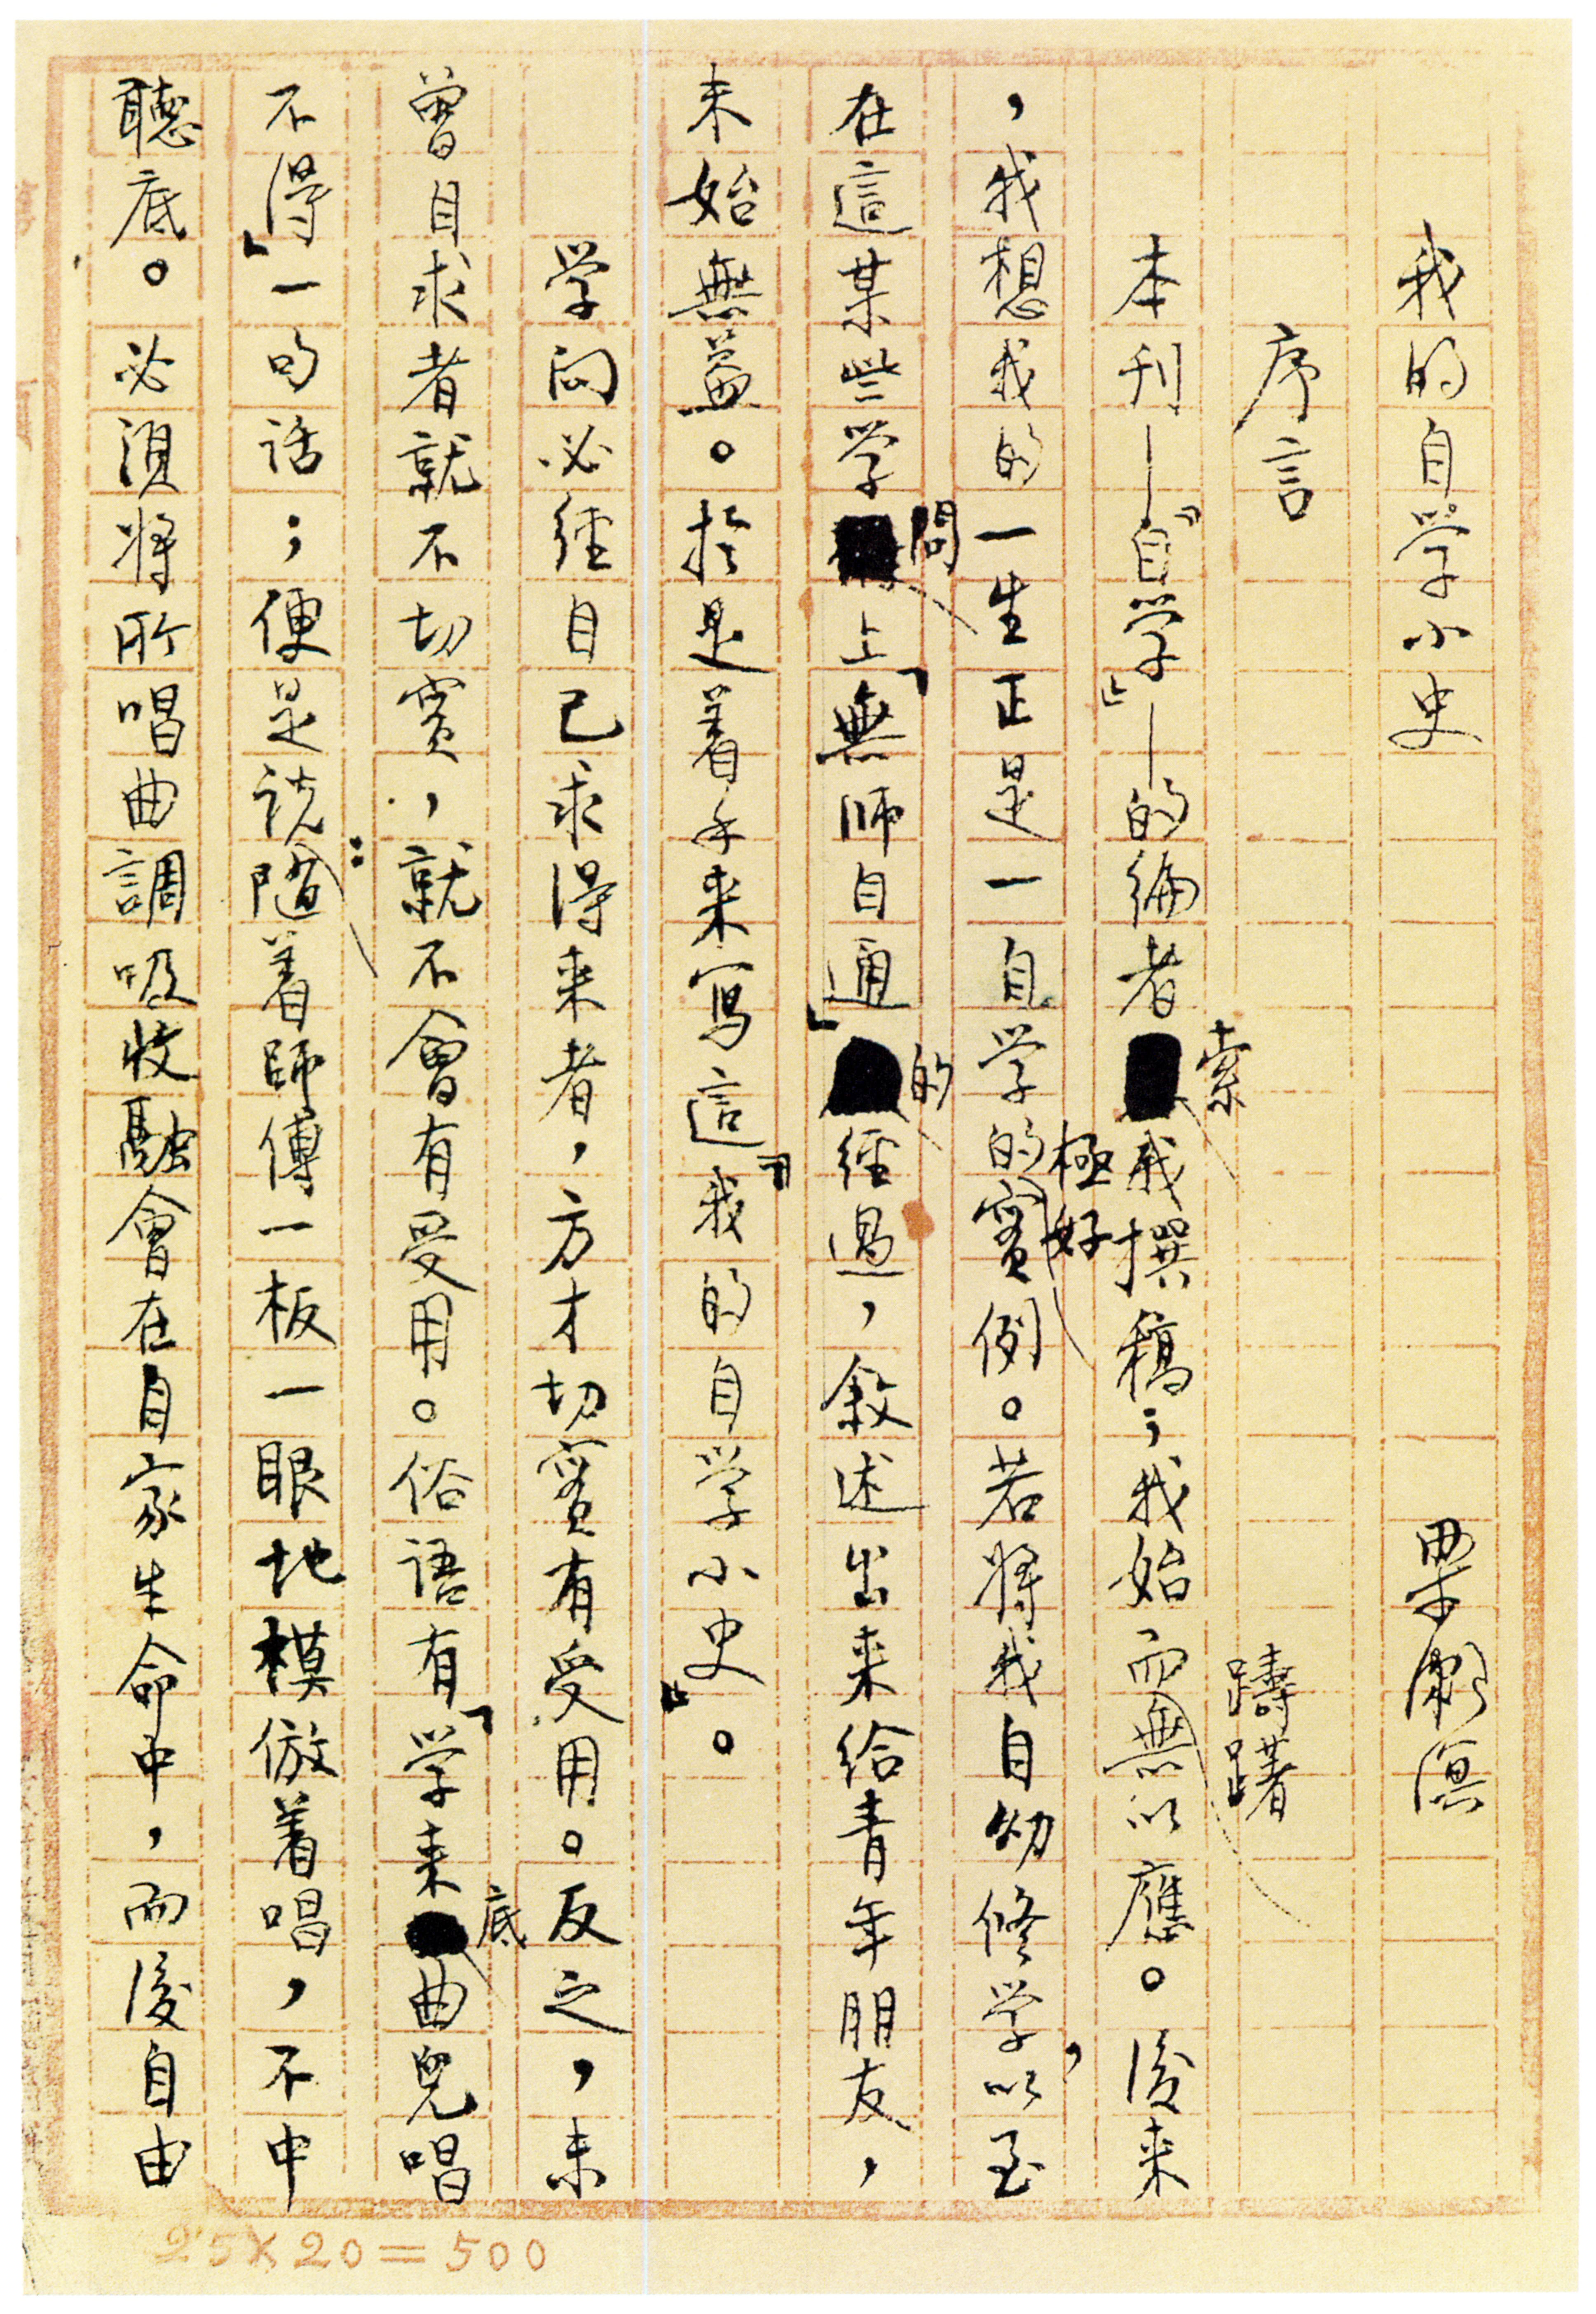 我的自学小史 梁漱溟
序言
本刋—『自学』—的编者索我撰稿；我始而躊躇無以應。後来
，我想我的一生正是一自学的極好實例。若将我自幼修学，以至
在這某些学問上「無師自通」的經過，敘述出来给青年朋友，
未始無益。於是着手来寫這『我的自学小史』。
学问必經自己求得来者，方才切實有受用。反之，未
曾自求者就不切實，就不會有受用。俗語有「学来底曲兒唱
不得」一句话；便是说：随着師傅一板一眼地模倣着唱，不中
聽底。必須将所唱曲調吸收融會在自家生命中，而後自由
25×20＝500